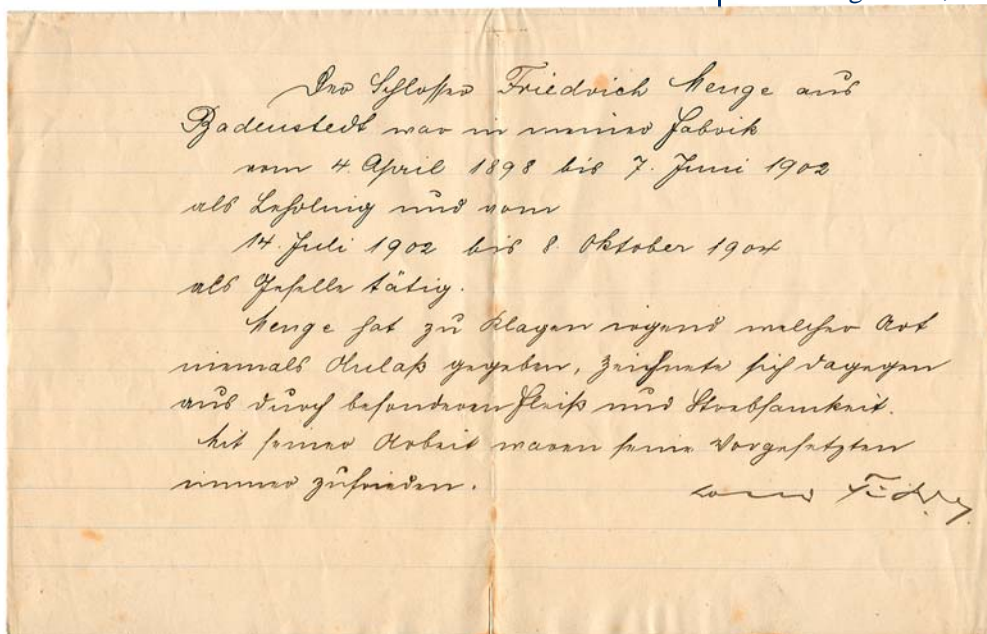 Der Schlosser Friedrich Menge aus
Badenstedt war in meiner Fabrik
vom 4. April 1898 bis 7. Juni 1902
als Lehrling und vom
14. Juli 1902 bis 8. Oktober 1904
als Geselle tätig.
Menge hat zu Klagen irgend welcher Art
niemals Anlaß gegeben, zeichnete sich dagegen
aus durch besonderen Fleiß und Strebsamkeit.
Mit seiner Arbeit waren seine Vorgesetzten
immer zufrieden.